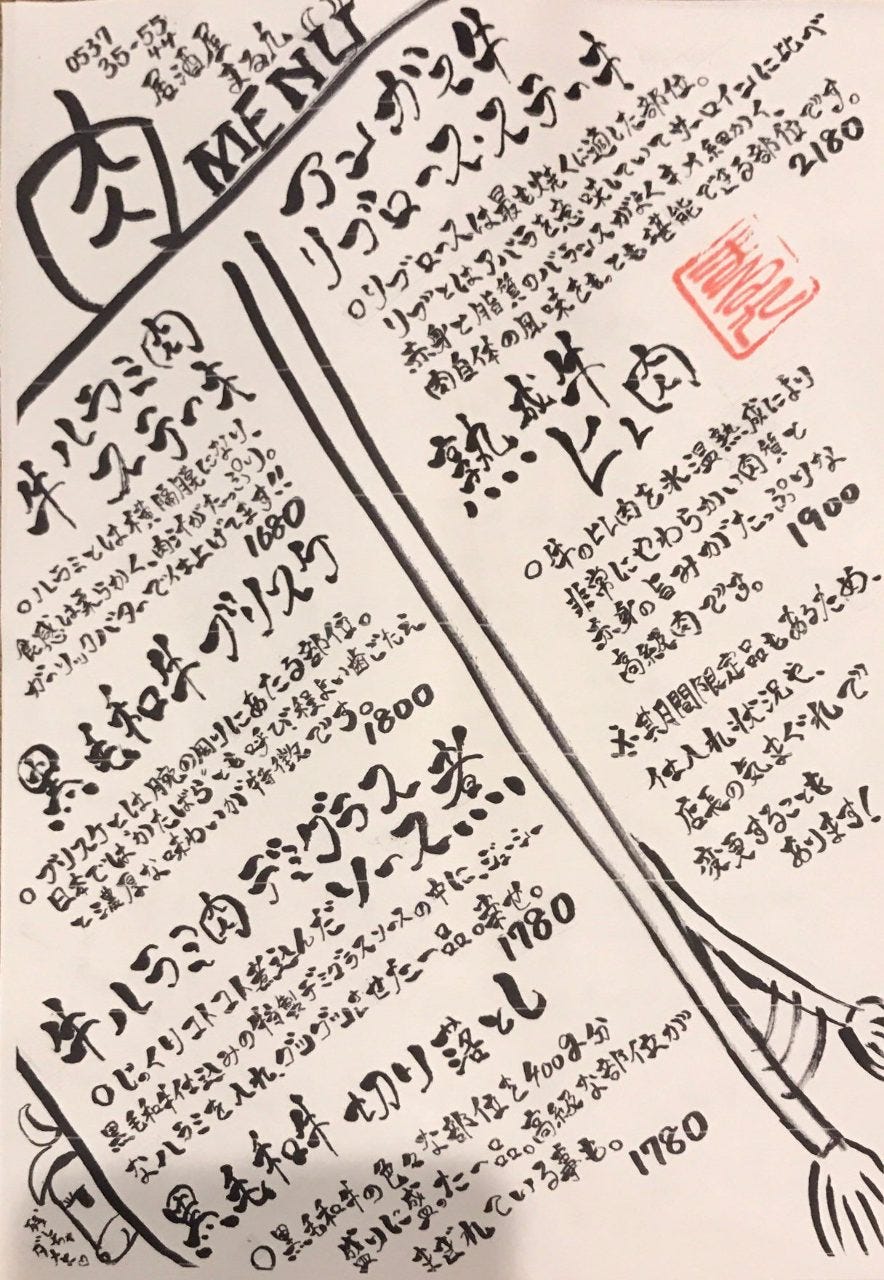 0537
35-55
44
居酒屋
まる九
肉MENU
アンガス牛
リブロース・ステーキ
○リブロースは最も焼くに適した部位。
リブとはアバラを意味していてサーロインに比べ
赤身と脂質のバランスがよくキメ細かく、
肉自体の風味をもっとも堪能できる部位です。
2180
熟成牛
ヒレ肉
○牛のヒレ肉を氷温熟成により
非常にやわらかい肉質と
赤身の旨みがたっぷりな
高級肉です。
1900
※期間限定品もあるため、
仕入れ状況や、
店長の気まぐれで
変更することも
あります!
牛ハラミ肉
ステーキ
○ハラミとは横隔膜になり、
食感は柔らかく、肉汁がたっぷり。
ガーリックバターで仕上げてます!!
1680
黒毛和牛ブリスケ
○ブリスケとは腕の周りにあたる部位。
日本ではかたばらとも呼び程よい歯ごたえ
と濃厚な味わいが特徴です。
1800
牛ハラミ肉デミグラス
ソース煮
○じっくりコトコト煮込んだ
黒毛和牛仕込みの特製デミグラスソースの中に、ジューシー
なハラミを入れ、グツグツさせた一品。幸せ。
1780
黒毛和牛 切り落とし
○黒毛和牛の色々な部位を400g分
盛りに盛った一品。高級な部位が
まぎれている事も。
1780